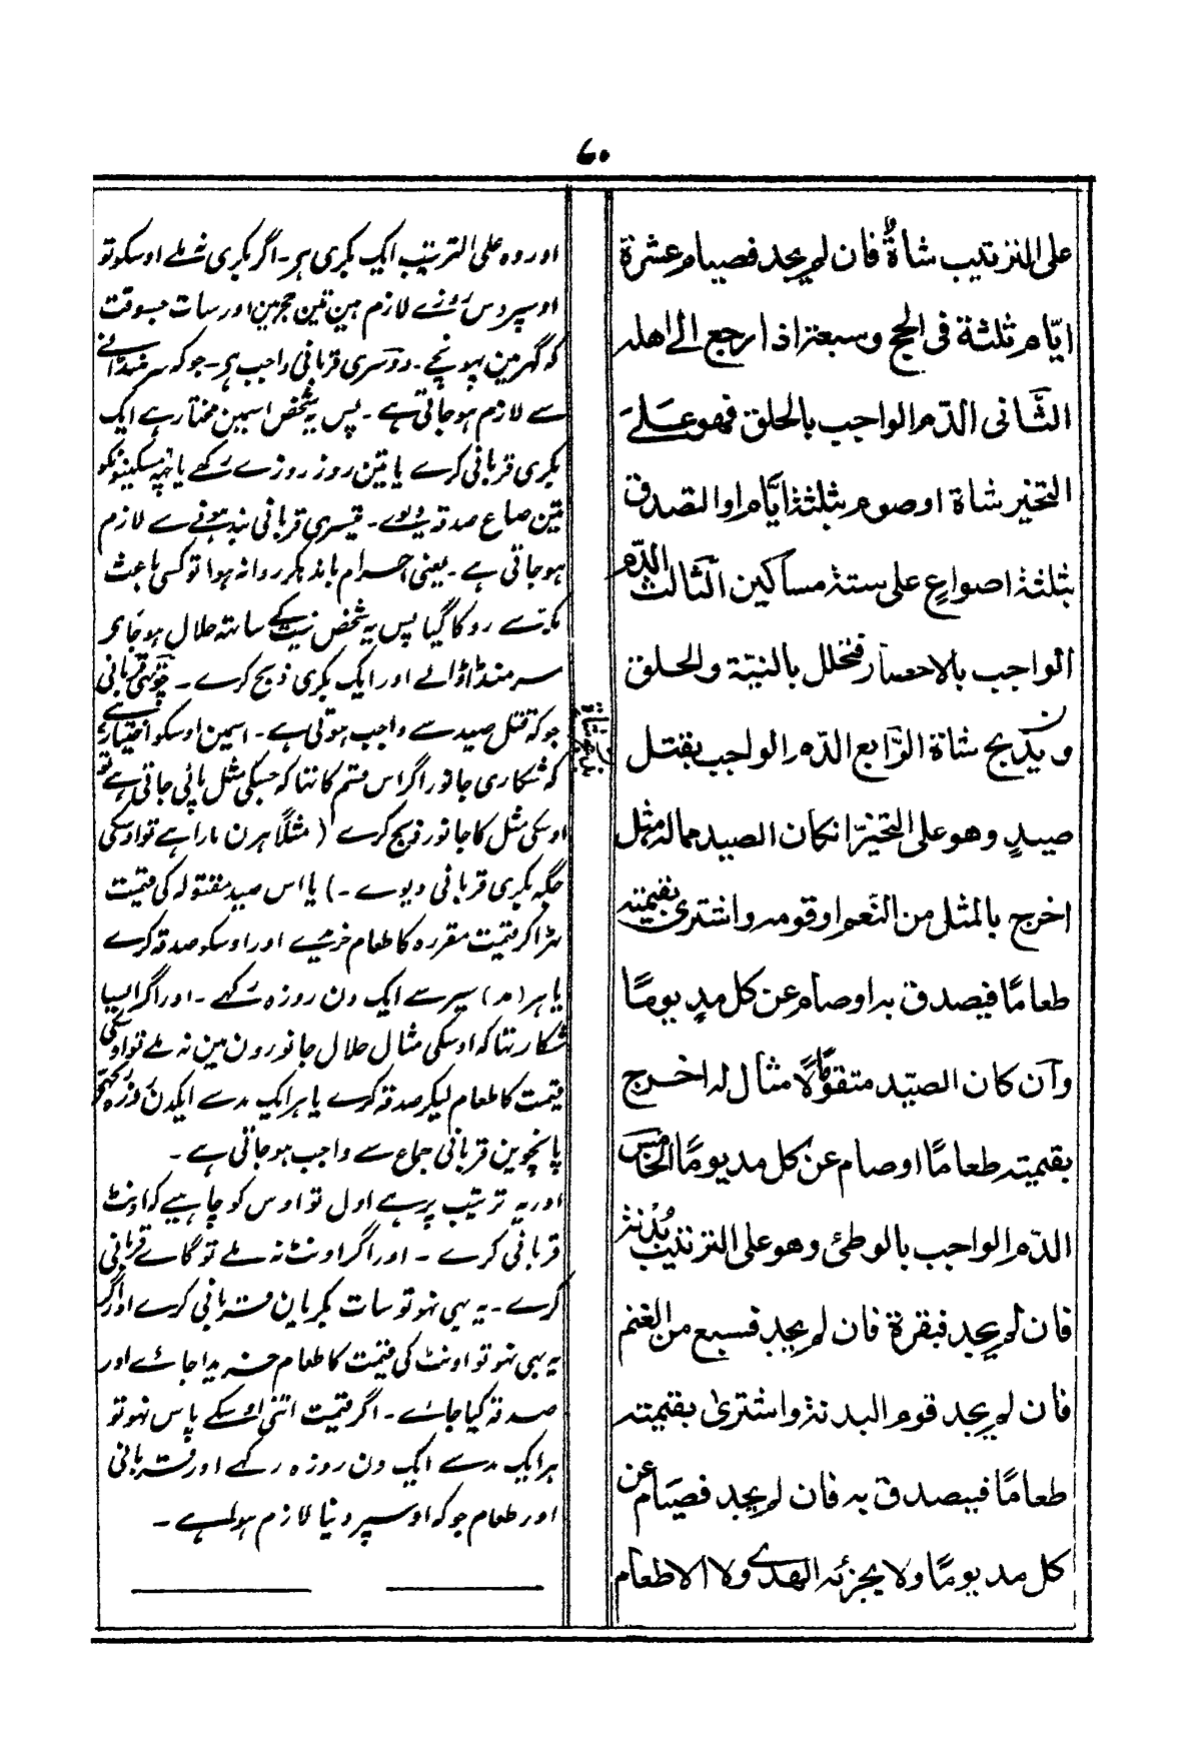 ۷۰
على الترتيب شاةٌ فان لم يجد فصيام عشرة
ايّام ثلثة فى الحج وسبعة اذا رجع الى اهله
الثَّانى الدّم الواجب بالحلق فهو علے
التخير شاة او صوم ثلثة ايَّام او التصدق
بثلثة اصواعٍ على ستة مساكين الثالث الدّم
الواجب بالاحصار فتحلل بالنيّة والحلق
و يذبح شاة الرّابع الدّم الواجب بقتل
صيدٍ وهو على التخيّر ان كان الصيد مما له مثل
اخرج بالمثل من النَّعم او قومه واشترى بقيمته
طعامًا فيصدق به او صام عن كل مدٍ يومًا
وان كان الصيّد متقوّمًا لا مثال له اخرج
بقيمته طعامًا او صام عن كل مد يومًا الخامس
الدّم الواجب بالوطئ وهو على الترتيب بُدنة
فان لم يجد فبقرة فان لم يجد فسبع من الغنم
فان لم يجد قوم البدنة واشترى بقيمته
طعامًا فيصدق به فان لم يجد فصيام عن
كل مد يومًا ولا يجزئه الهدى ولا الاطعام
اور وہ على الترتیب ایک بکری ہر۔ اگر بکری نہ ملے اوسکو تو
اوسپر دس روزے لازم ہین تین حج مین اور سات جسوقت
کہ گھر مین پہونچے۔ دوسری قربانی واجب ہر۔ جو کہ سر منڈانے
سے لازم ہو جاتی ہے۔ پس یہ شخص اسمین مختار ہے ایک
بکری قربانی کرے یا تین روز روزے رکھے یا چھہ مسکینونکو
تین صاع صدقہ دیوے۔ تیسری قربانی بند ہونے سے لازم
ہو جاتی ہے۔ یعنی احرام باندھکر روانہ ہوا تو کسی باعث
مکہ سے روکا گیا پس یہ شخص نیت کے ساتھ حلال ہو جائے
سر منڈا ڈالے اور ایک بکری ذبح کرے۔ چوتھی قربانی
جو کہ قتل صید سے واجب ہوتی ہے۔ اسمین اوسکو اختیار ہے
کہ شکاری جانور اگر اس قسم کا تھا کہ جسکی مثل پائی جاتی ہے تو
اوسکی مثل کا جانور ذبح کرے (مثلًا ہرن مارا ہے تو اوسکی
جگہ بکری قربانی دیوے۔) یا اس صید مقتولہ کی قیمت
ہڑا کر قیمت مقررہ کا طعام خریدے اور اوسکو صدقہ کرے
یا ہر (مد) سیر سے ایک دن روزہ رکھے۔ اور اگر ایسا
شکار تھا کہ اوسکی مثال حلال جانورون مین نہ ملے تو اوسکی
قیمت کا طعام لیکر صدقہ کرے یا ہر ایک مد سے ایکدن روزہ رکھے
پانچوین قربانی جماع سے واجب ہو جاتی ہے۔
اور یہ ترتیب پر ہے اول تو اوس کو چاہیے کہ اونٹ
قربانی کرے۔ اور اگر اونٹ نہ ملے تو گاے قربانی
کرے۔ یہ بھی نہو تو سات بکریان قربانی کرے اور اگر
یہ بھی نہو تو اونٹ کی قیمت کا طعام خریدا جائے اور
صدقہ کیا جائے۔ اگر قیمت اتنی اوسکے پاس نہو تو
ہر ایک مد سے ایک دن روزہ رکھے اور قربانی
اور طعام جو کہ اوسپر دنیا لازم ہولہے۔